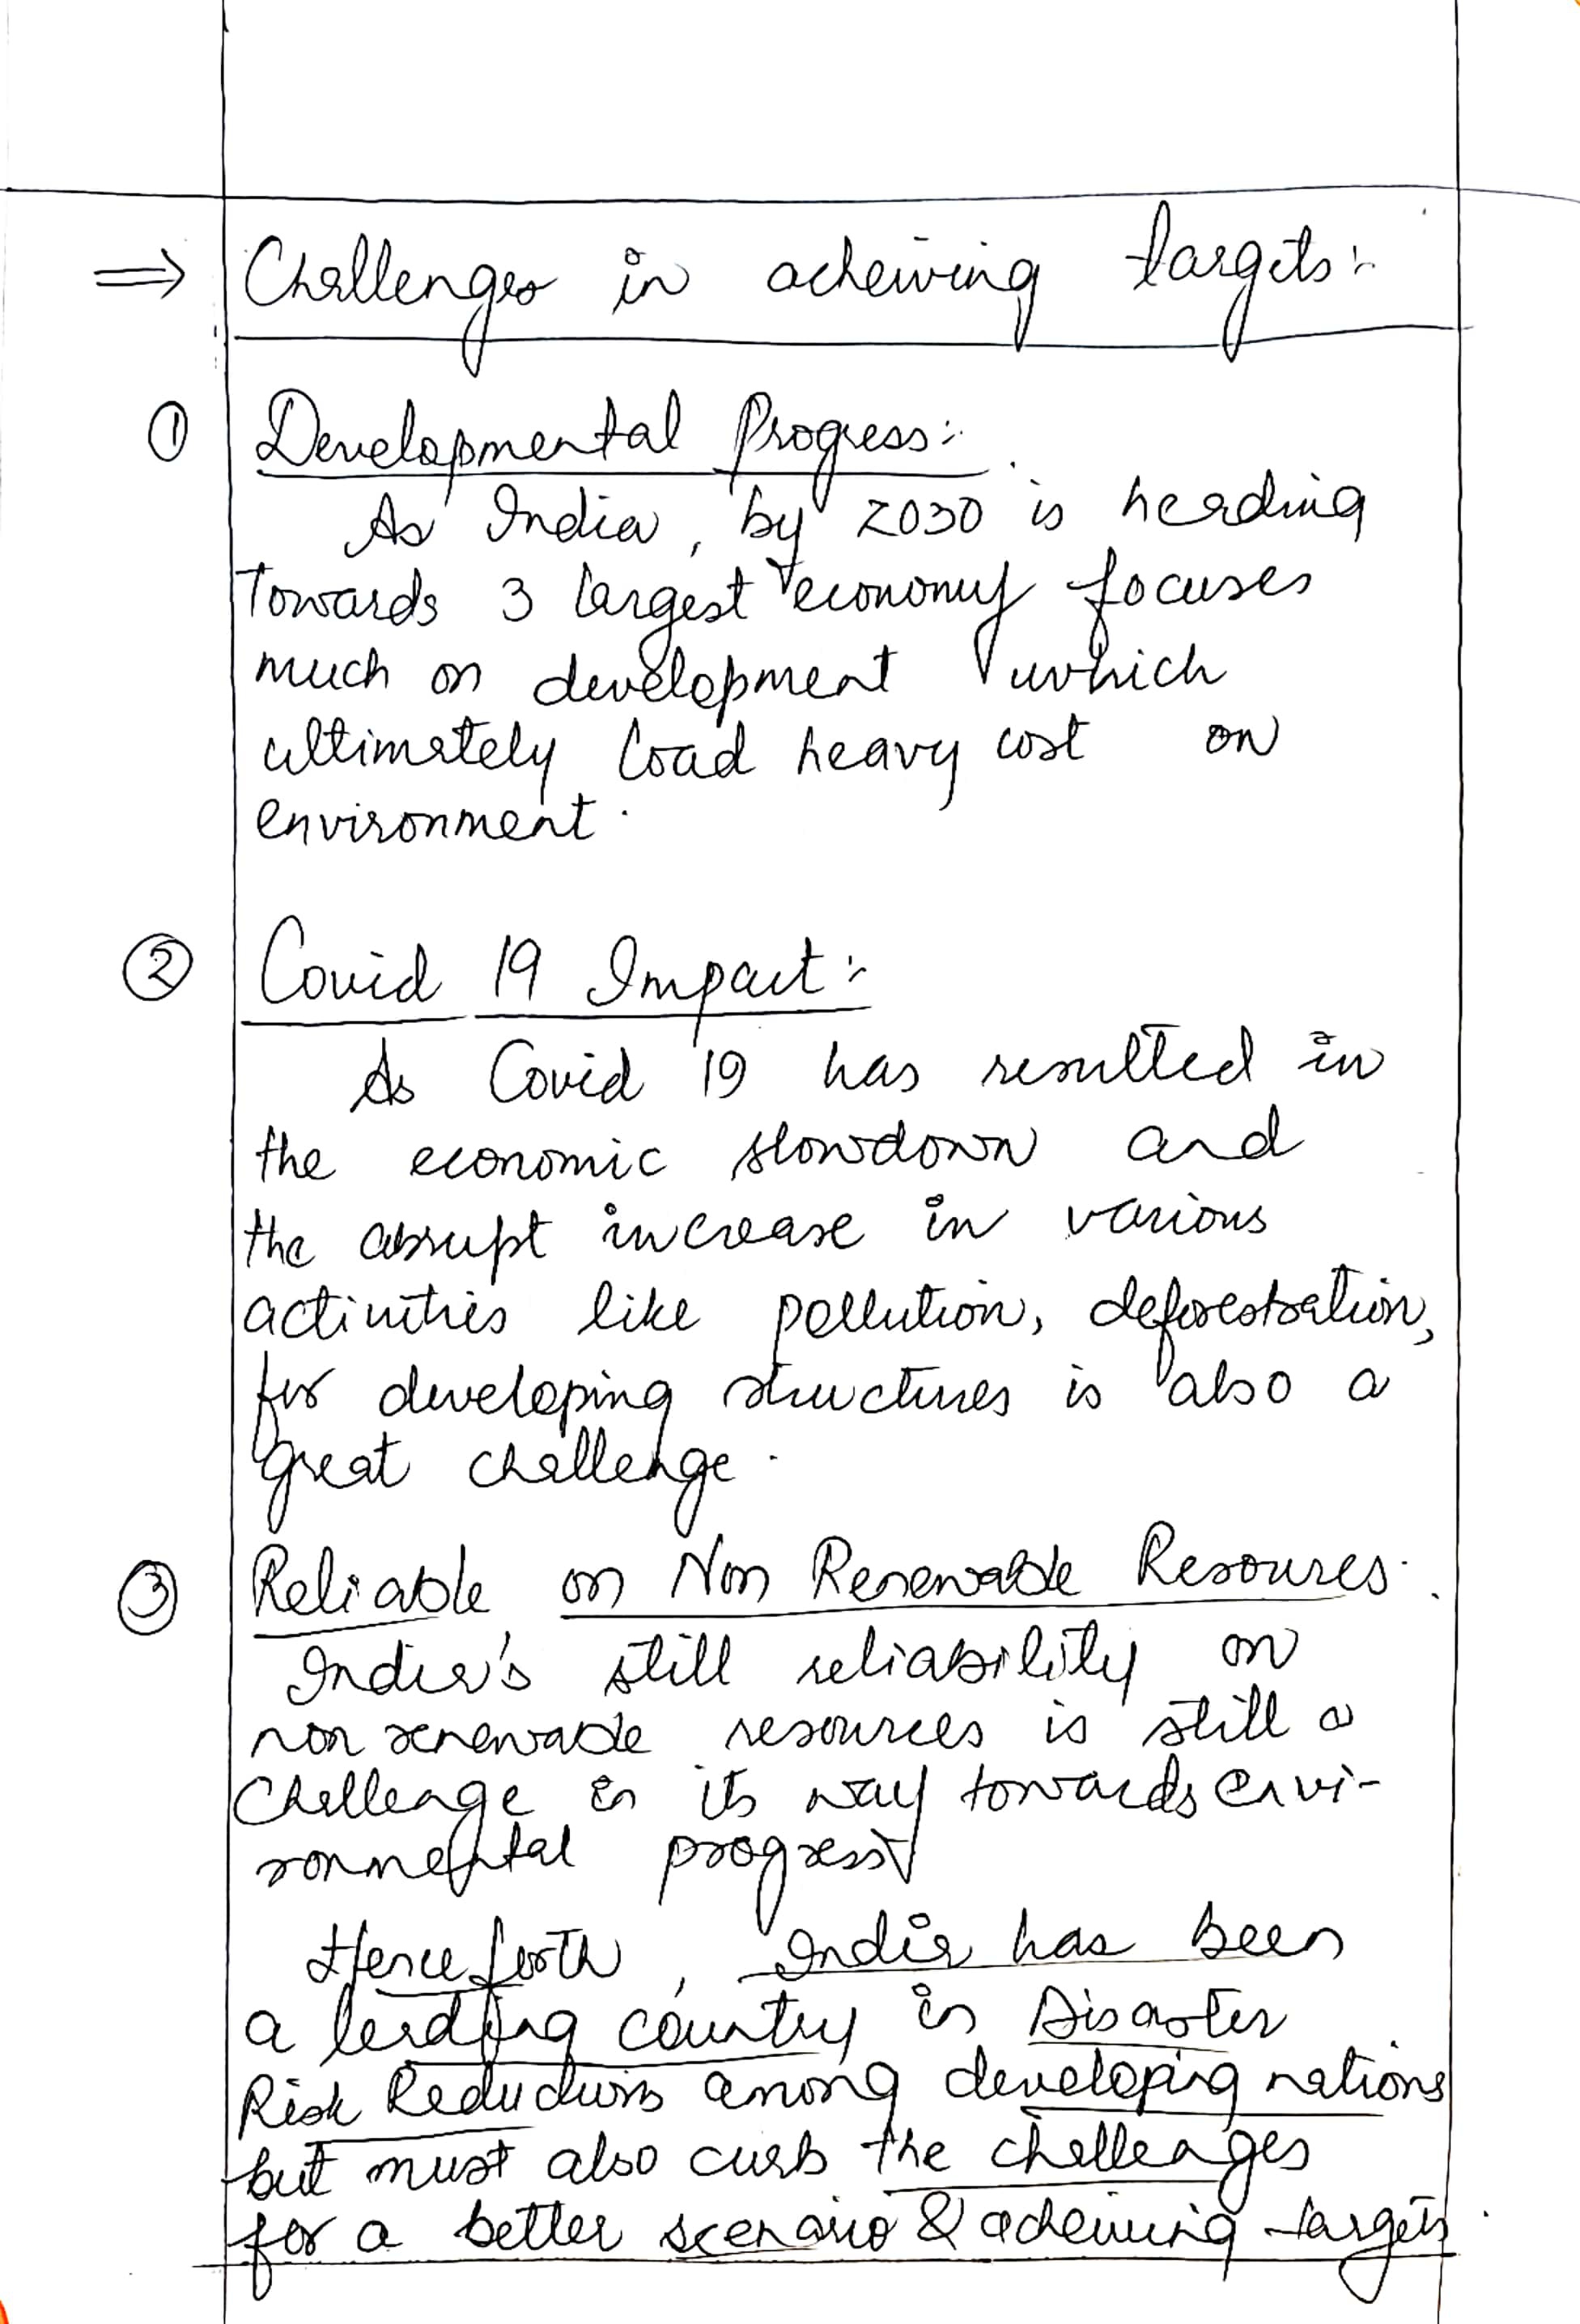 ⇒ Challenges in acheiving targets:-
① Developmental Progress:-
As India, by 2030 is heading
Towards 3 largest economy focuses
much on development which
ultimately load heavy cost on
environment.
② Covid 19 Impact:-
As Covid 19 has resulted in
the economic slowdown and
the abrupt increase in various
activities like pollution, deforestration,
for developing structures is also a
great challenge.
③ Reliable on Non Renewable Resources.
India's still reliability on
non renewable resources is still a
challenge in its way towards envi-
ronmental progress
Hence forth, India has been
a leading country in Disaster
Risk Reductions among developing nations
but must also curb the challenges
for a better scenario & acheiving targets.